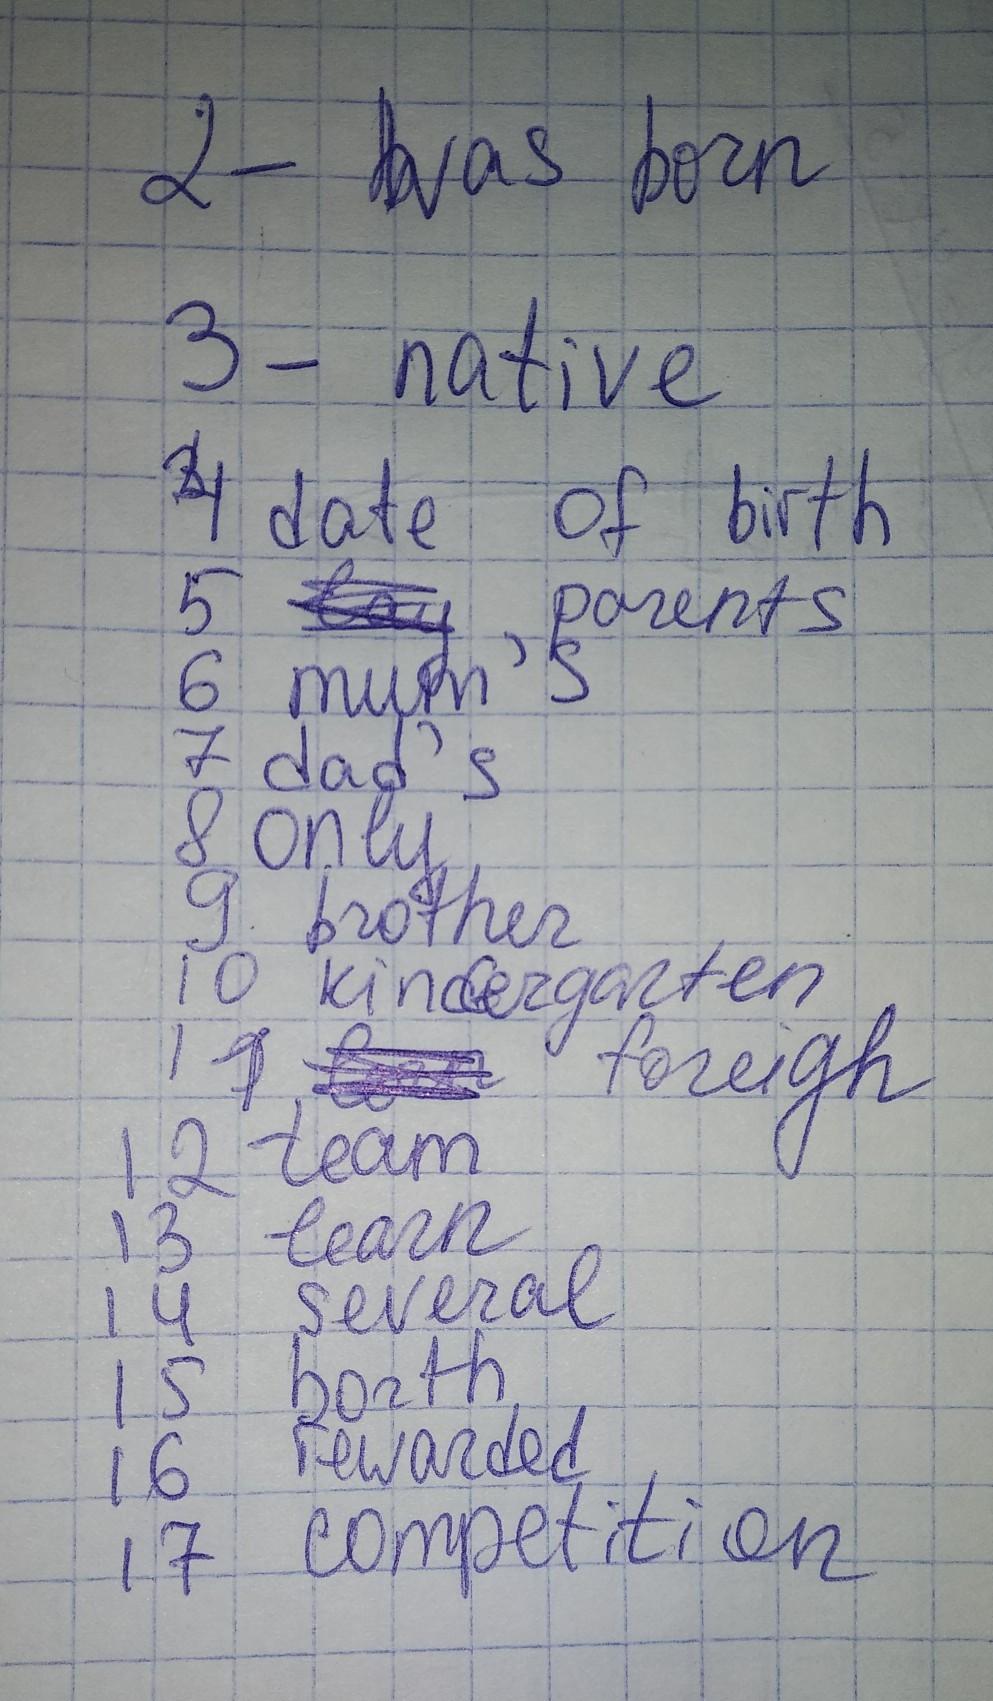 2- was born
3- native
4 date of birth
5 parents
6 mum's
7 dad's
8 only
9. brother
10 kindergarten
11 foreigh
12 team
13 learn
14 several
15 borth
16 rewarded
17 competition